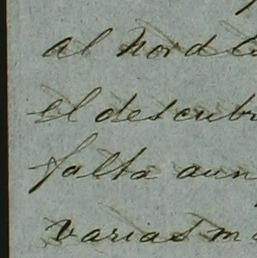 al Nord
el descubr
falta aun
varias m